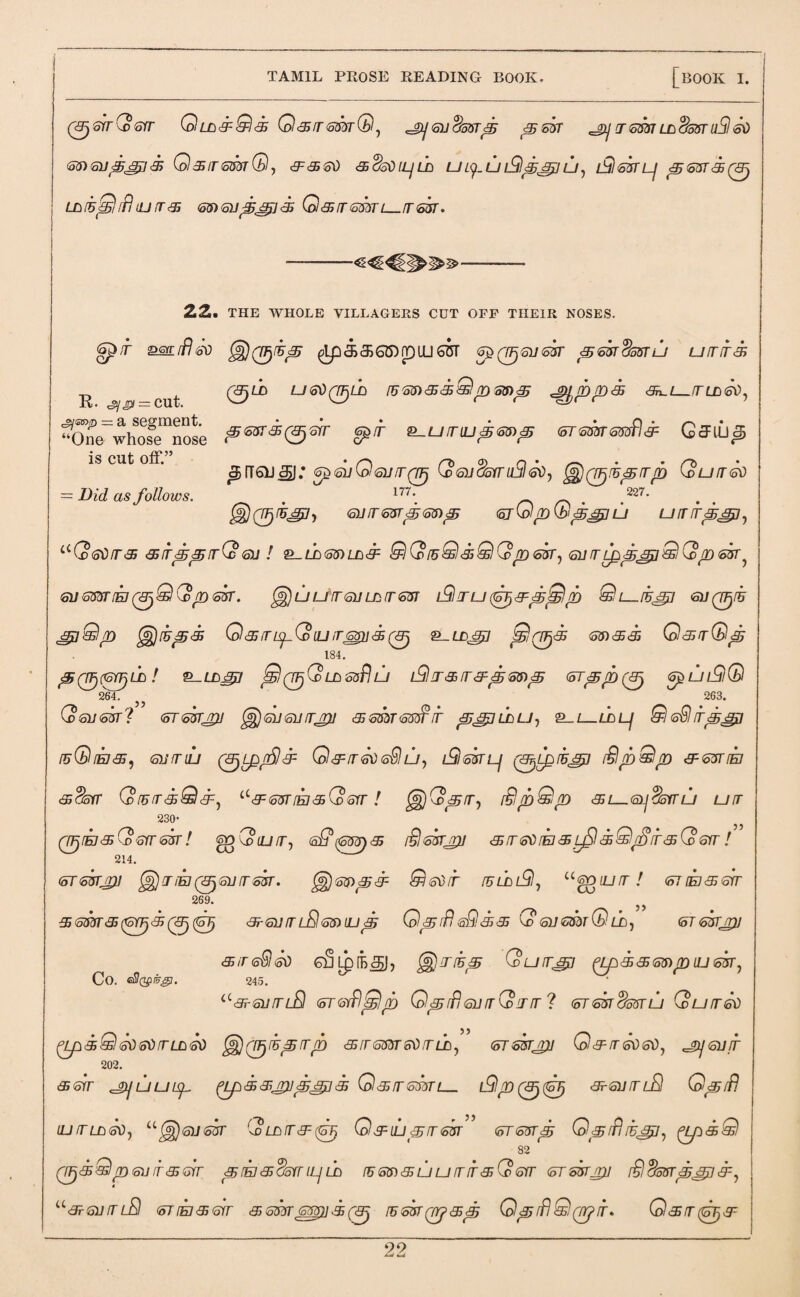 TAMIL PROSE READING BOOK. [BOOK I.
குள்ளே மெச்சிக் கொண்டு, அவனைத் தன் அரண்மனையில்
வைத்துக் கொண்டு, சகல கலையும் படிப்பித்துப், பின்பு தனக்கு
மந்திரியாக வைத்துக் கொண்டான்.
22. THE WHOLE VILLAGERS CUT OFF THEIR NOSES.
ஓர் ஊரில் இருந்த மூக்கறையன் ஒருவன் தன்னைப் பார்க்
R. அறு = cut.
கும் பலரும் நகைக்கிறதை ஆற்றக் கூடாமல்,
அறை = a segment.
“One whose nose
is cut off.”
தனக்குள் ஓர் உபாயத்தை எண்ணிச் செய்த
தாவது: ஒவ்வொரு வேளையில், இருந்தாற் போல்
= Did as follows.
177. 227.
இருந்து, வானத்தை ஏறெடுத்துப் பார்த்து,
“லோக கர்த்தாவே ! உம்மைச் சிநேகிக்கிறேன், வாழ்த்துகிறேன்,
வணங்குகிறேன். இப்பாவமான பிரபஞ்சத்திற் கிடந்து வருந்
துகிற இந்தக் கொடியோனுக்கு உமது திருக் கைக் கொடுத்
184.
தருளும் ! உமது திருமேனிப் பிரகாசத்தை எதற்கு ஒப்பிடு
264. 263.
வேன் ?” என்று இவ்வாறு கண்ணீர் ததும்ப, உடம்பு சிலிர்த்து
நடுங்க, வாய் குழறிச் சொல்லிப், பின்பு குழந்து நிற்கிற சனங்
களை நோக்கிச், “சனங்களே ! இதோ, நிற்கிற கடவுளைப் பா
230.
ருங்களேன் ! ஐயோ, வீணாக நின்று காலங் கழிக்கிறீர்களே !”
214.
என்று இரங்குவான். இதைச் சிலர் நம்பி, “ஐயா ! எங்கள்
269.
கண்களுக்குஞ் சுவாமியைத் தெரிவிக்க வேண்டும்,” என்று
காலில் வீழ்ந்து, இரந்த போது மூக்கறையன்,
Co. விழுந்து. 245.
“சுவாமி எளிதிற் தெரிவாரோ ? என்னைப் போல்
மூக்கில்லாமல் இருந்தாற் காணலாம்,” என்று சொல்ல, அவர்
202.
கள் அப்படி மூக்கறுத்துக் கொண்டபிறகுஞ் சுவாமி தெரி
யாமல், “இவன் மோசஞ் செய்தான்” என்று தெரிந்து, மூக்கி
82
ருக்கிறவர்கள் தங்களையும் நகைப்பார்களே என்று நினைத்துச்,
“சுவாமி எங்கள் கண்ணுக்கு நன்றாகத் தெரிகிறார். கொஞ்ச
22